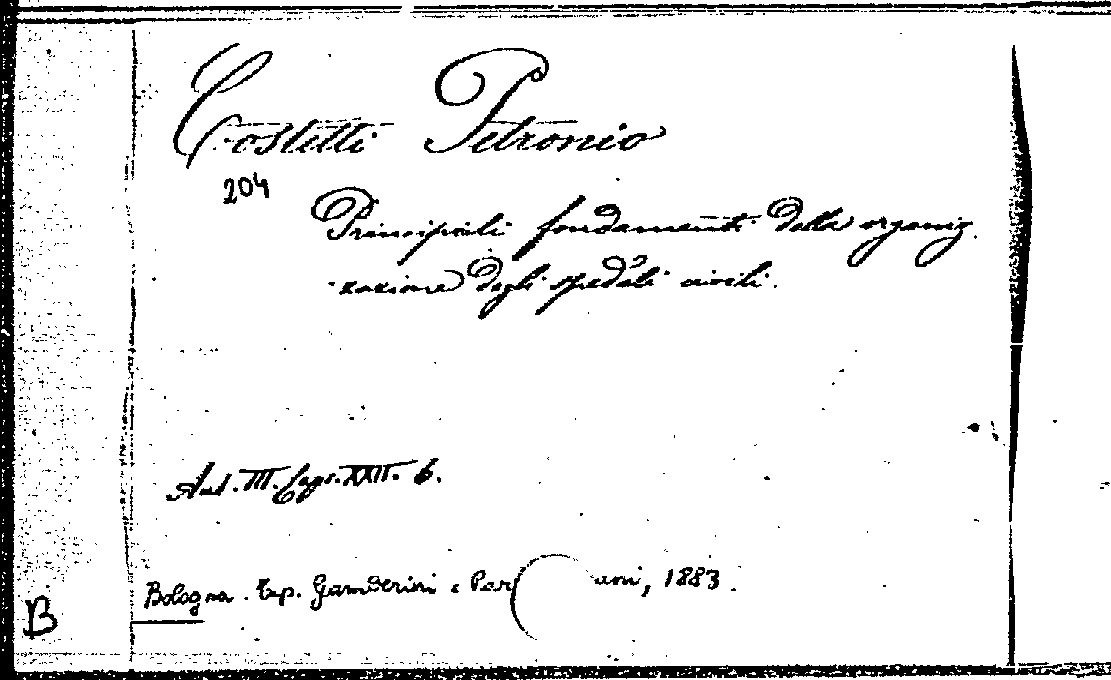 Costetti Petronio
204
Principali fondamenti della organiz
zazione degli spedali civili.
Aul. III. Caps. XXII. b.
Bologna. Tip. Gamberini e Par ani, 1883.
B